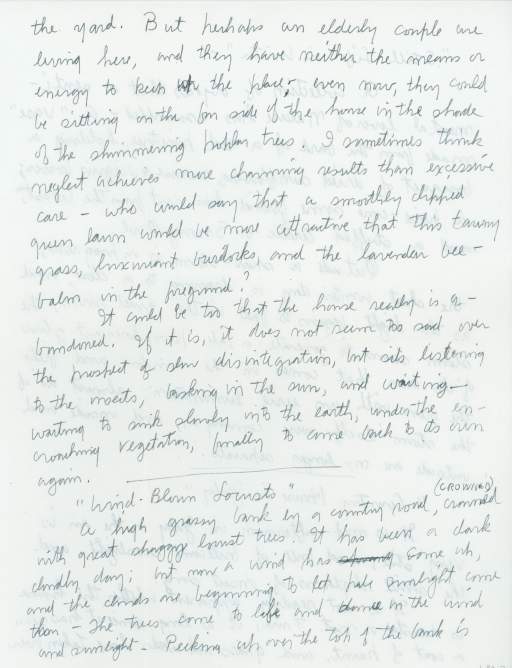 the yard. But perhaps an elderly couple are
living here, and they have neither the means or
energy to keep up the place; even now, they could
be sitting on the far side of the house in the shade
of the shimmering poplar trees. I sometimes think
neglect achieves more charming results than excessive
care – who would say that a smoothly clipped
green lawn would be more attractive that this tawny
grass, luxuriant burdocks, and the lavender bee-
balm in the foreground?
It could be too that the house really is a-
bandoned. If it is, it does not seem too sad over
the prospect of slow disintegration, but sits listening
to the insects, basking in the sun, and waiting –
waiting to sink slowly into the earth, under the en-
croaching vegetation, finally to come back to its own
again.
"Wind-Blown Locusts" (CROWNED)
A high grassy bank by a country road, crowned
with great shaggy locust trees. It has been a dark
cloudy day; but now a wind has sprung come up,
and the clouds are beginning to let pale sunlight come
thru – The trees come to life and dance in the wind
and sunlight – Peeking up over the top of the bank is